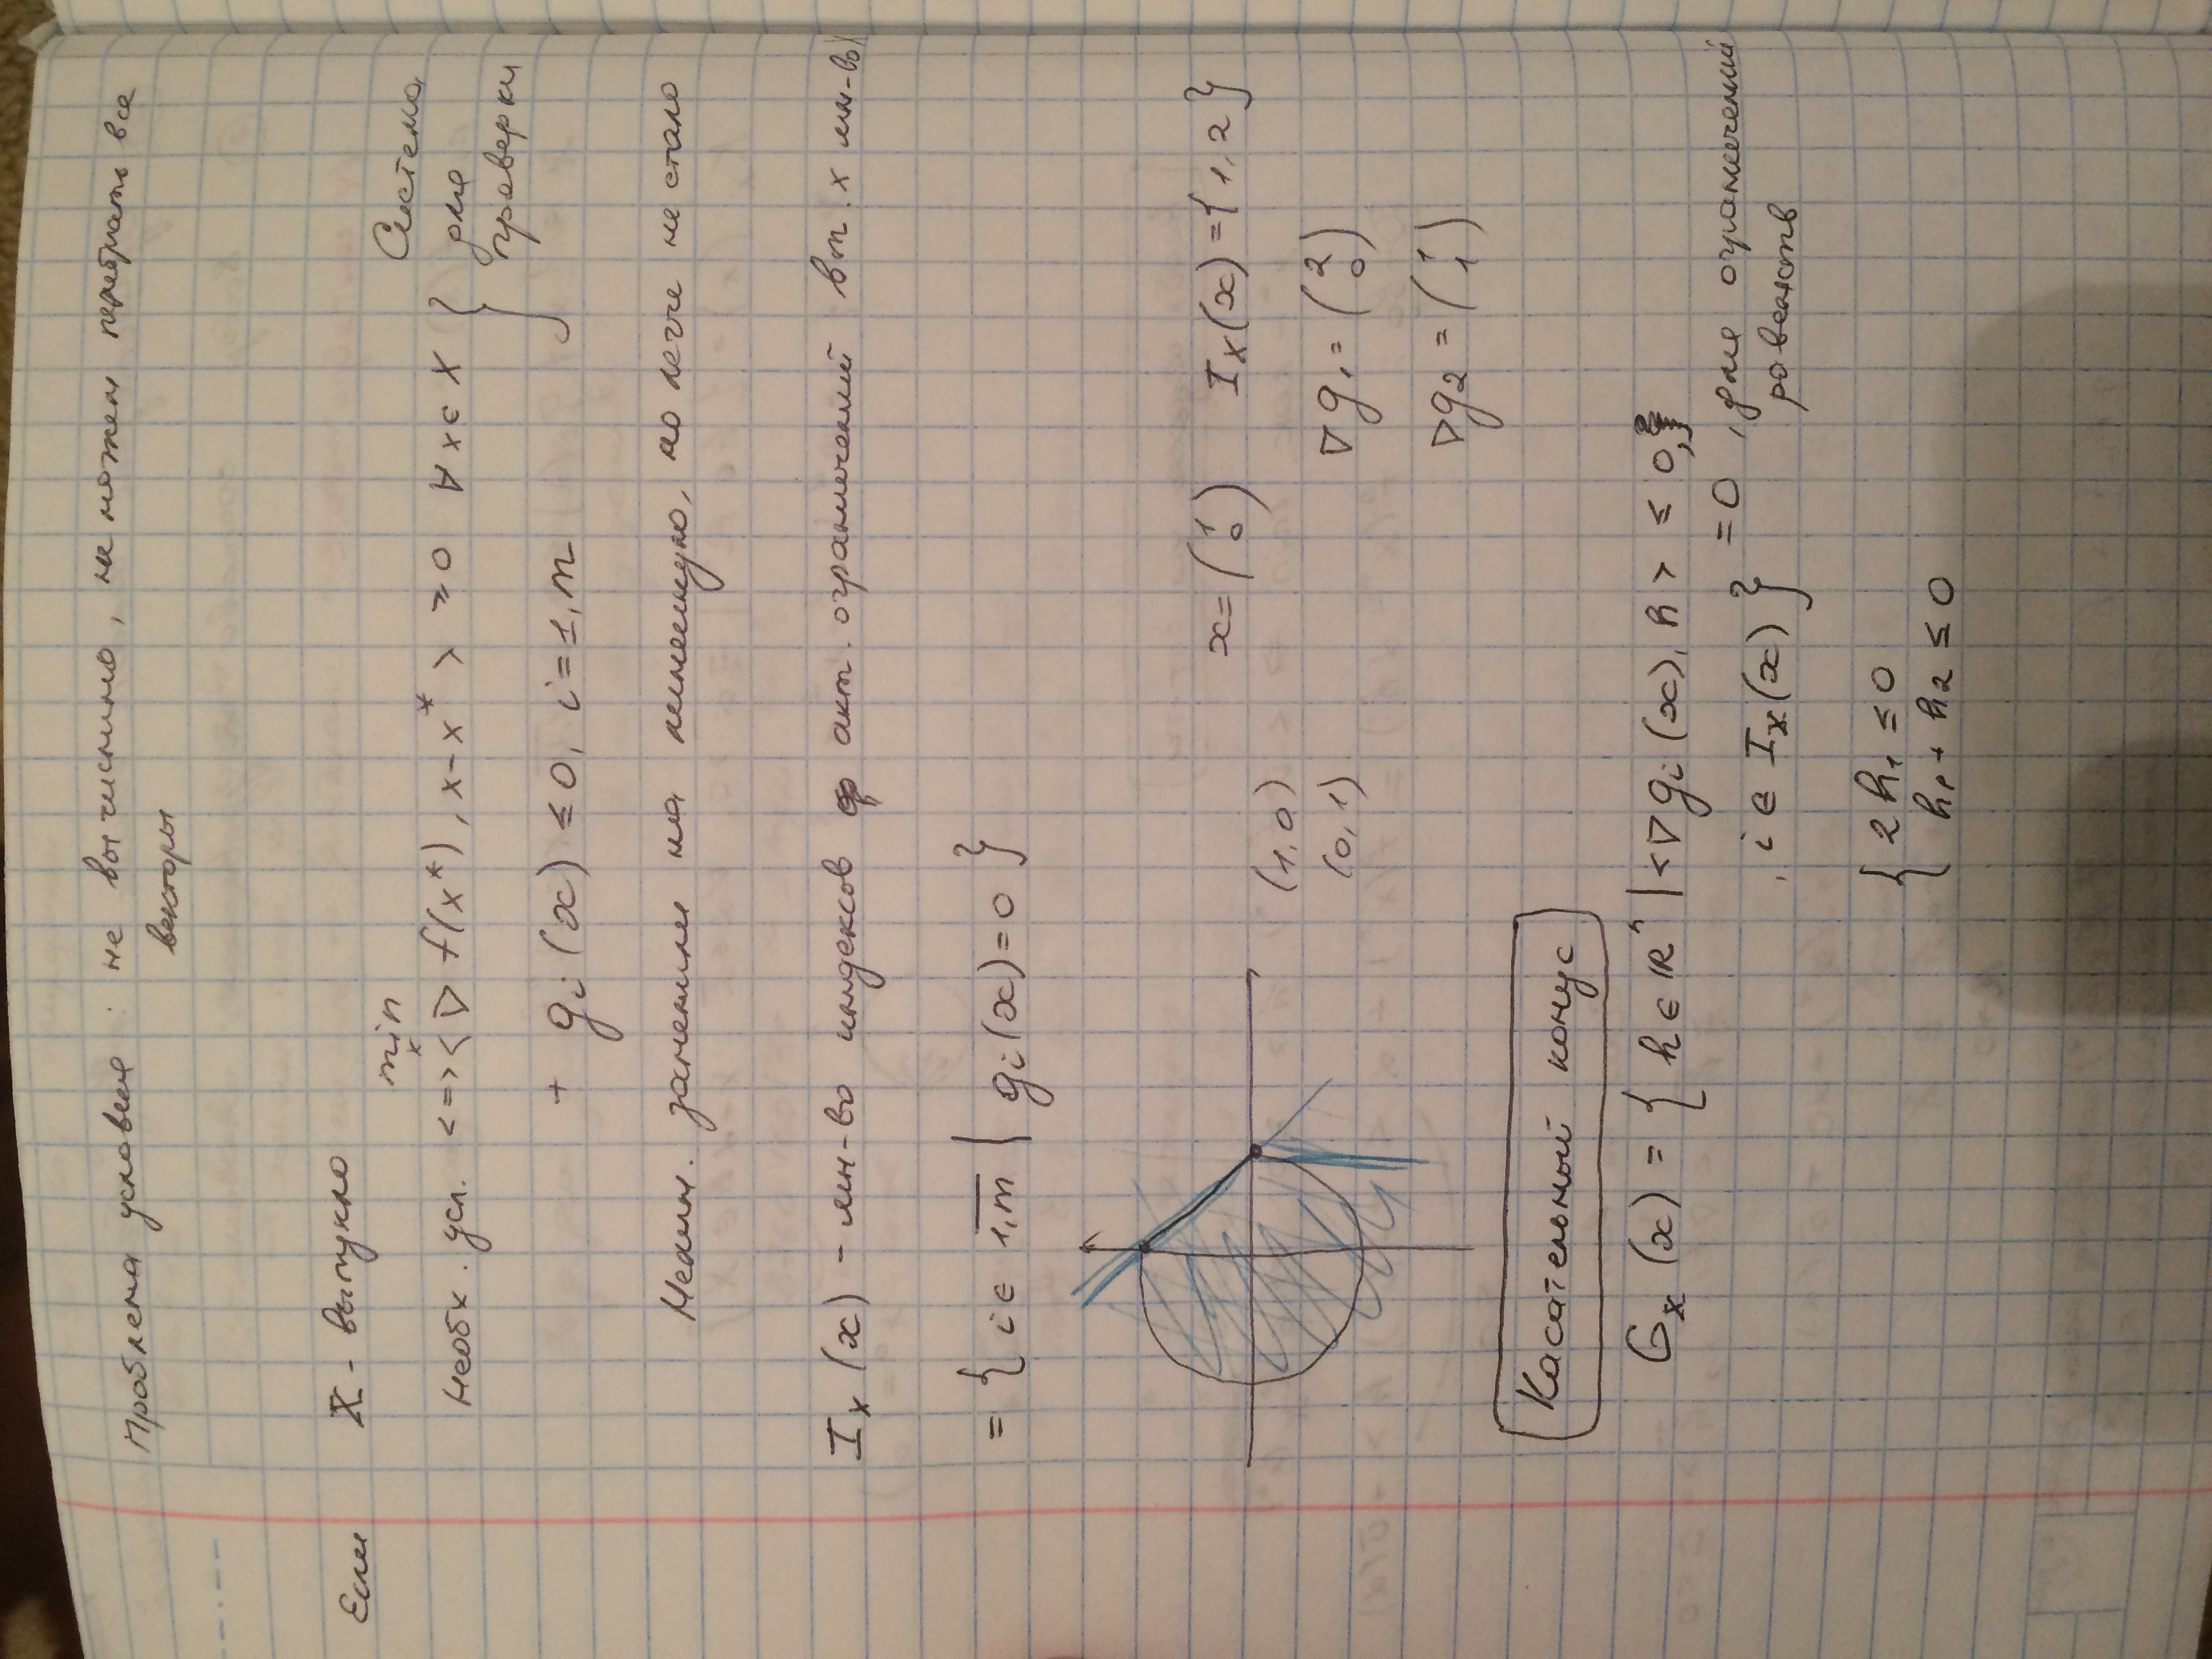 Проблема условия : не вычислимо, не можем перебрать все
векторы
Если X - выпукло
min
x
Необх. усл. <=> <∇ f(x*), x-x*> ≥ 0 ∀ x ∈ X } Система для проверки
+ gi(x) ≤ 0, i=1,m
заменили на линейную, но легче не стало
Ix(x) - мн-во индексов акт. ограничений в т. x мн-ва
= { i ∈ 1,m | gi(x)=0 }
x = (1 0) Ix(x) = {1, 2}
(1,0)
(0,1)
∇g1 = (2 0)
∇g2 = (1 1)
Касательный конус
Gx(x) = { h ∈ ℝⁿ | <∇gi(x), h> ≤ 0,
=0, для ограничений
равенств
, i ∈ Ix(x) }
{ 2h1 ≤ 0
h1 + h2 ≤ 0